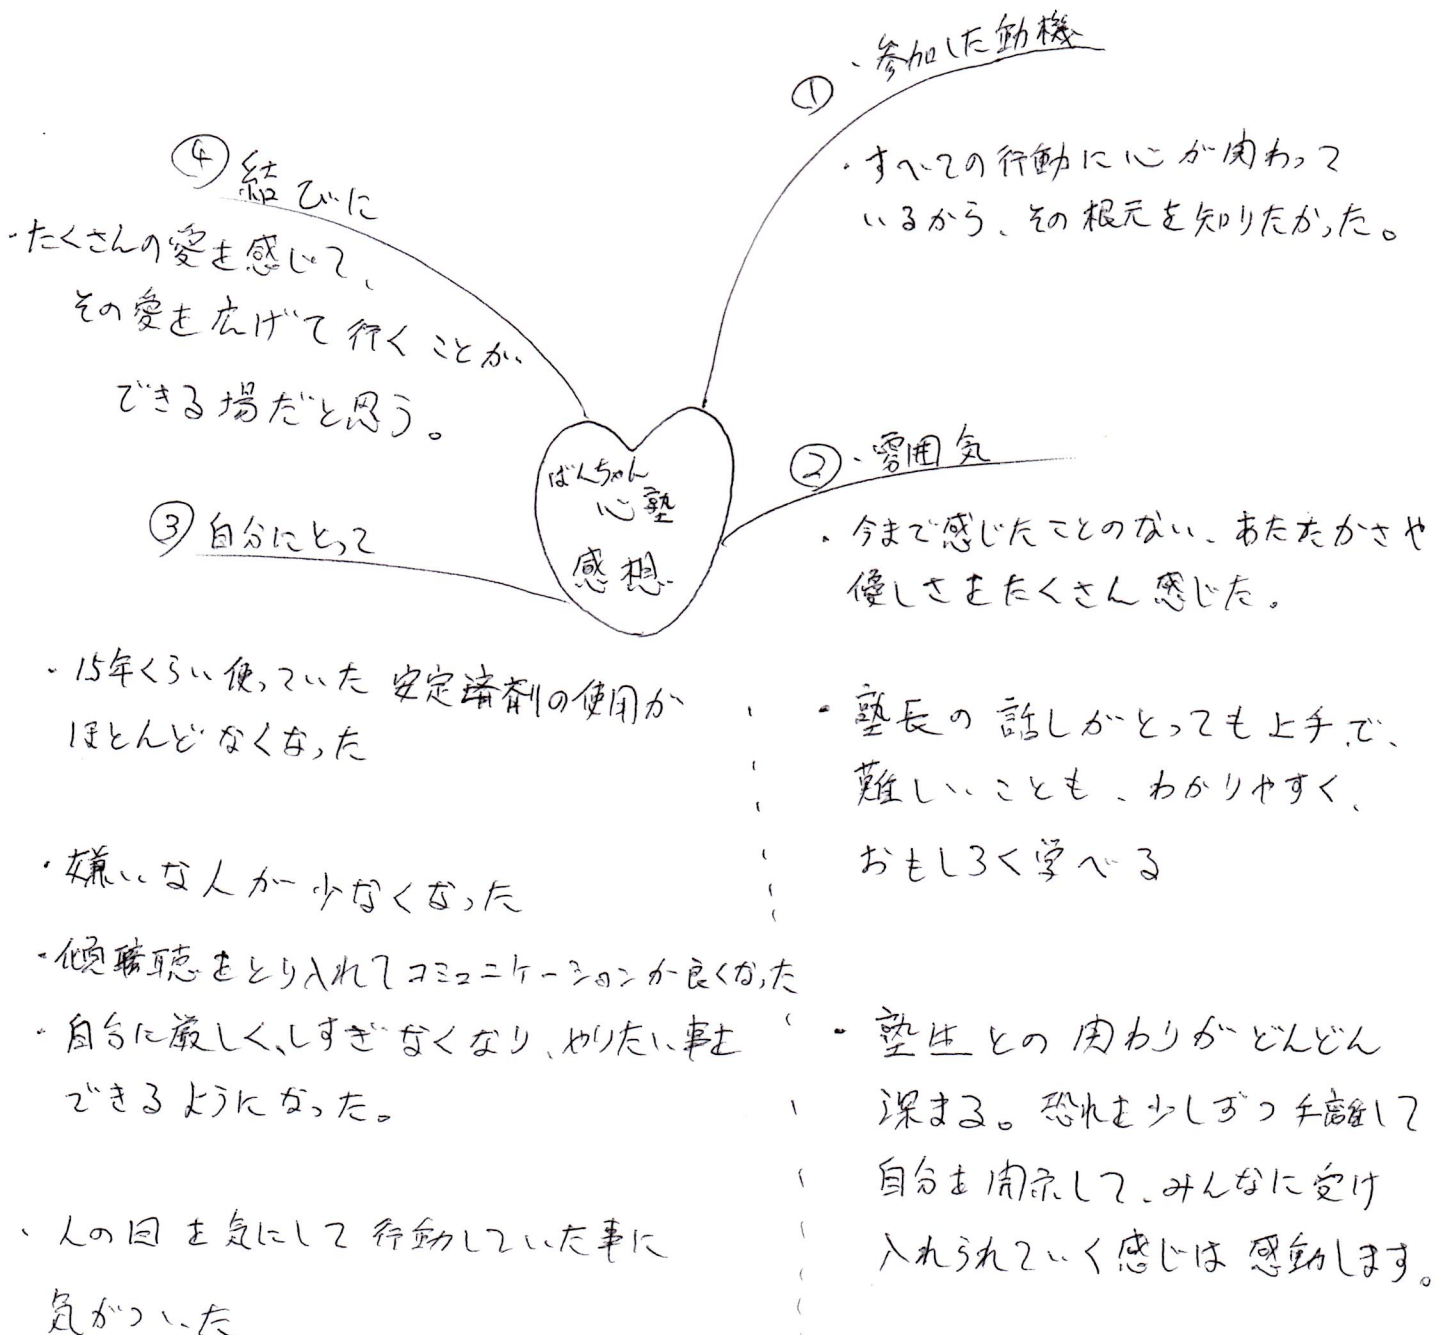 ばんちゃん
心塾
感想
①
・参加した動機
・すべての行動に心が関わって
いるから、その根元を知りたかった。
②・雰囲気
・今まで感じたことのない、あたたかさや
優しさをたくさん感じた。
・塾長の話しがとっても上手で、
難しいことも、わかりやすく、
おもしろく学べる
・塾生との関わりがどんどん
深まる。恐れを少しずつ手離して
自分を開示して、みんなに受け
入れられていく感じは感動します。
③自分にとって
・15年くらい使っていた安定剤の使用が
ほとんどなくなった
・嫌いな人が少なくなった
・傾聴をとり入れてコミュニケーションが良くなった
・自分に厳しく、しすぎなくなり、やりたい事を
できるようになった。
・人の目を気にして行動していた事に
気がついた
④結びに
・たくさんの愛を感じて、
その愛を広げて行くことが
できる場だと思う。